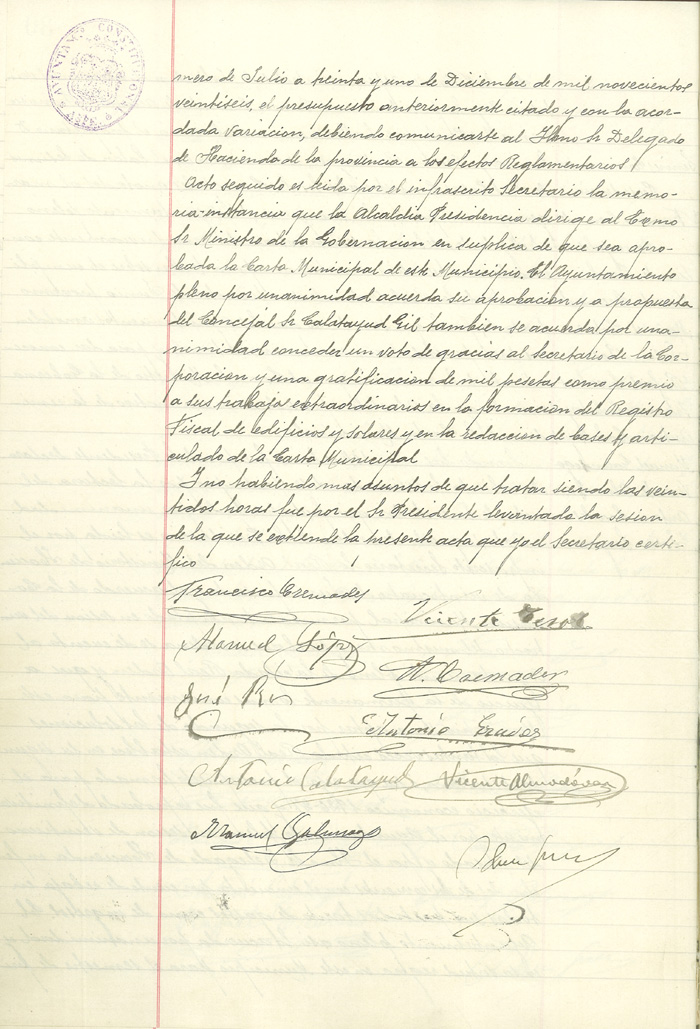 AYUNTAMIENTO CONSTITUCIONAL
mero de Julio a treinta y uno de Diciembre de mil novecientos
veintiseis, el presupuesto anteriormente citado y con la acor-
dada variacion, debiendo comunicarse al Ilmo Sr Delegado
de Hacienda de la provincia a los efectos Reglamentarios
Acto seguido es leida por el infrascrito Secretario la memo-
ria-instancia que la Alcaldia Presidencia dirige al Exmo
Sr Ministro de la Gobernacion en suplica de que sea apro-
bada la Carta Municipal de este Municipio. El Ayuntamiento
pleno por unanimidad acuerda su aprobacion y a propuesta
del Concejal Sr Calatayud Gil tambien se acuerda por una-
nimidad conceder un voto de gracias al Secretario de la Cor-
poracion y una gratificacion de mil pesetas como premio
a sus trabajos extraordinarios en la formacion del Registro
Fiscal de edificios y solares y en la redaccion de bases y arti-
culado de la Carta Municipal
Y no habiendo mas asuntos de que tratar siendo las vein-
tidos horas fue por el Sr Presidente levantada la sesion
de la que se extiende la presente acta que yo el Secretario certi-
fico
Francisco Cremades
Vicente
Manuel López
A. Cremades
José
Antonio
Antonio Calatayud
Vicente Almodóvar
Manuel